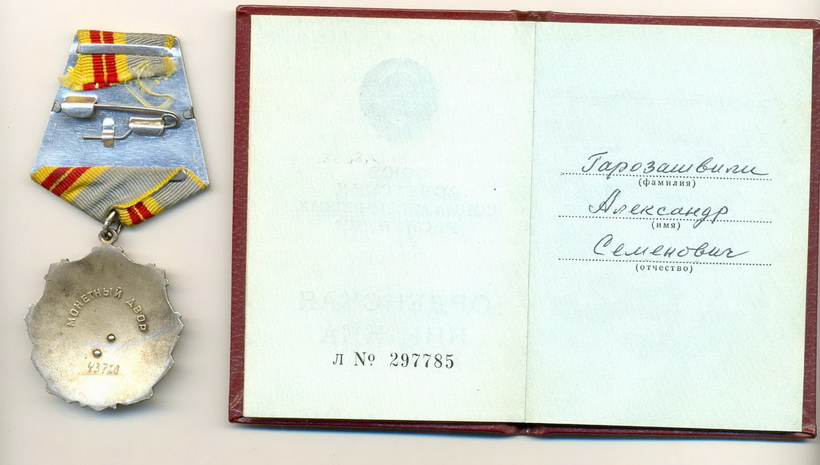 МОНЕТНЫЙ ДВОР
43720
Л № 297785
Гарозашвили
(фамилия)
Александр
(имя)
Семенович
(отчество)